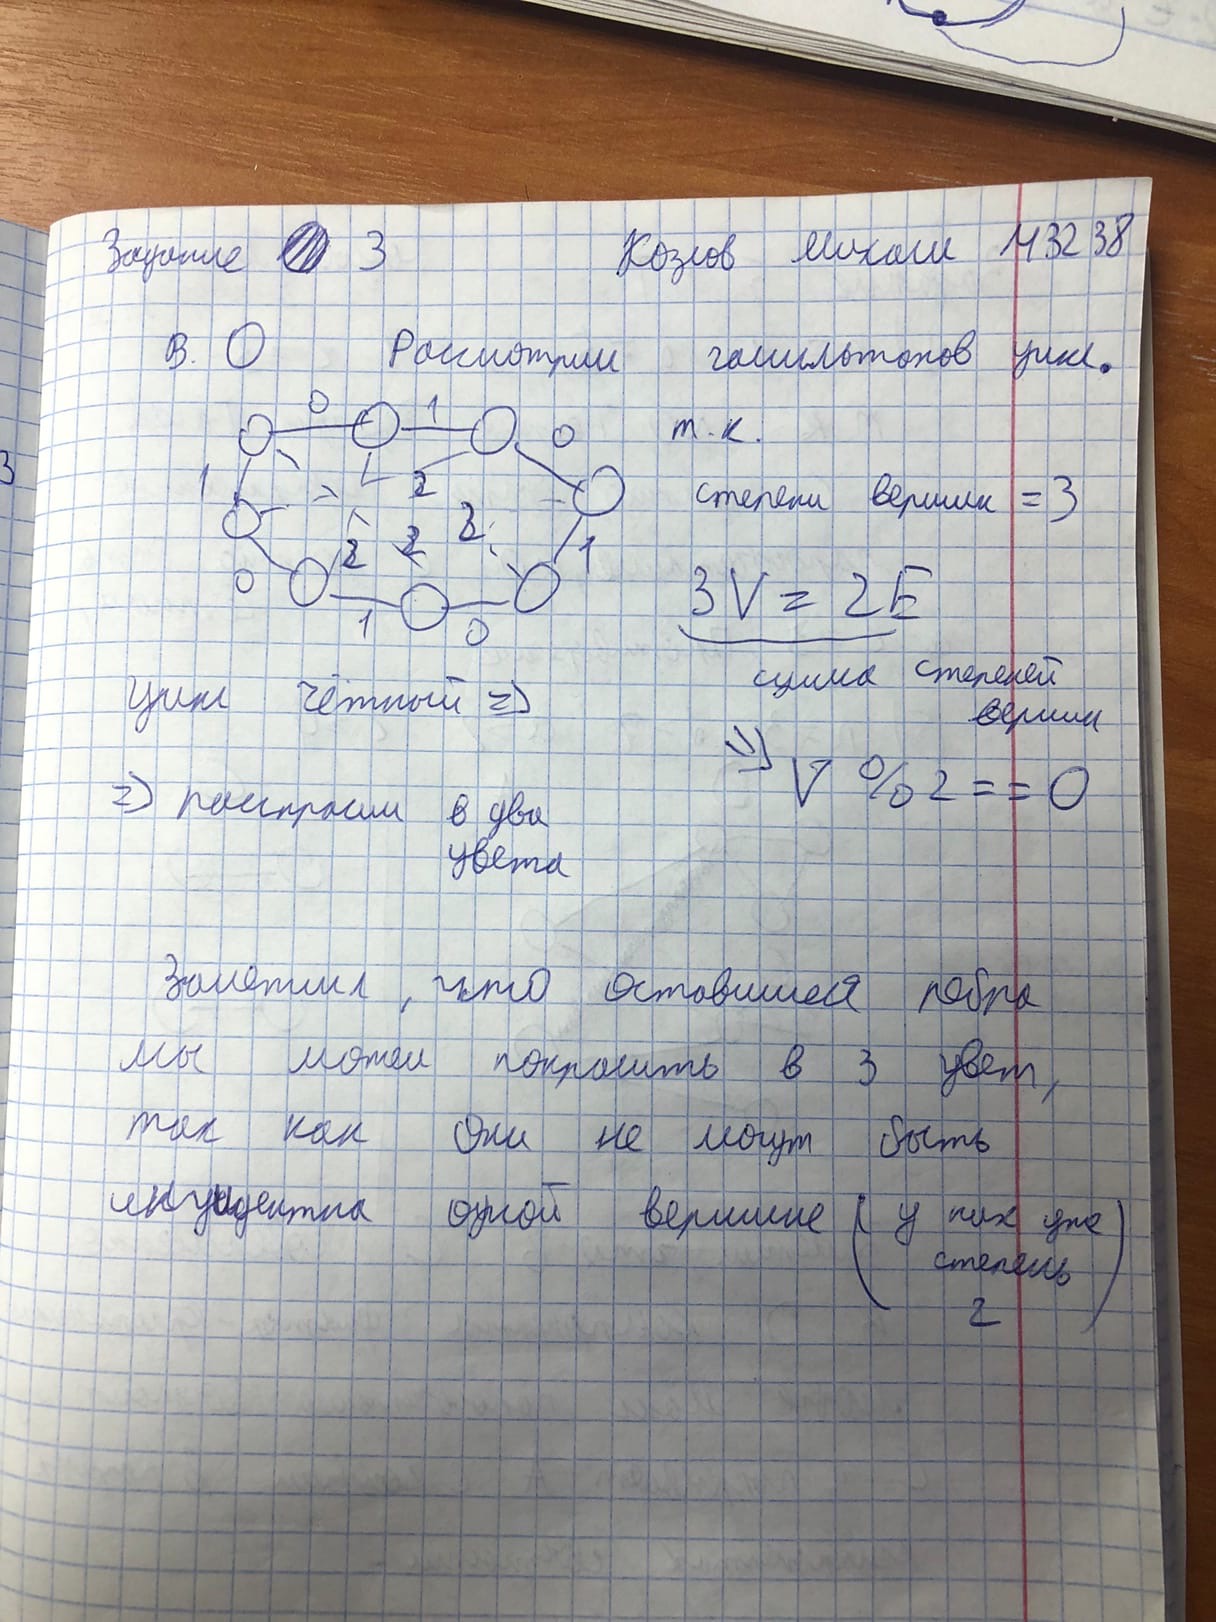 Задание 3 Козлов Михаил M3238
B. O Рассмотрим гамильтонов цикл.
0 1 0 т.к.
1 2 степени вершин = 3
2 2 2 1
0 1 0 3V = 2E
сумма степеней
вершин
цикл чётный =>
=> V % 2 == 0
=> раскрасим в два
цвета
Заметим, что оставшиеся рёбра
мы можем покрасить в 3 цвет,
так как они не могут быть
инцидентна одной вершине (у них уже
степень
2)